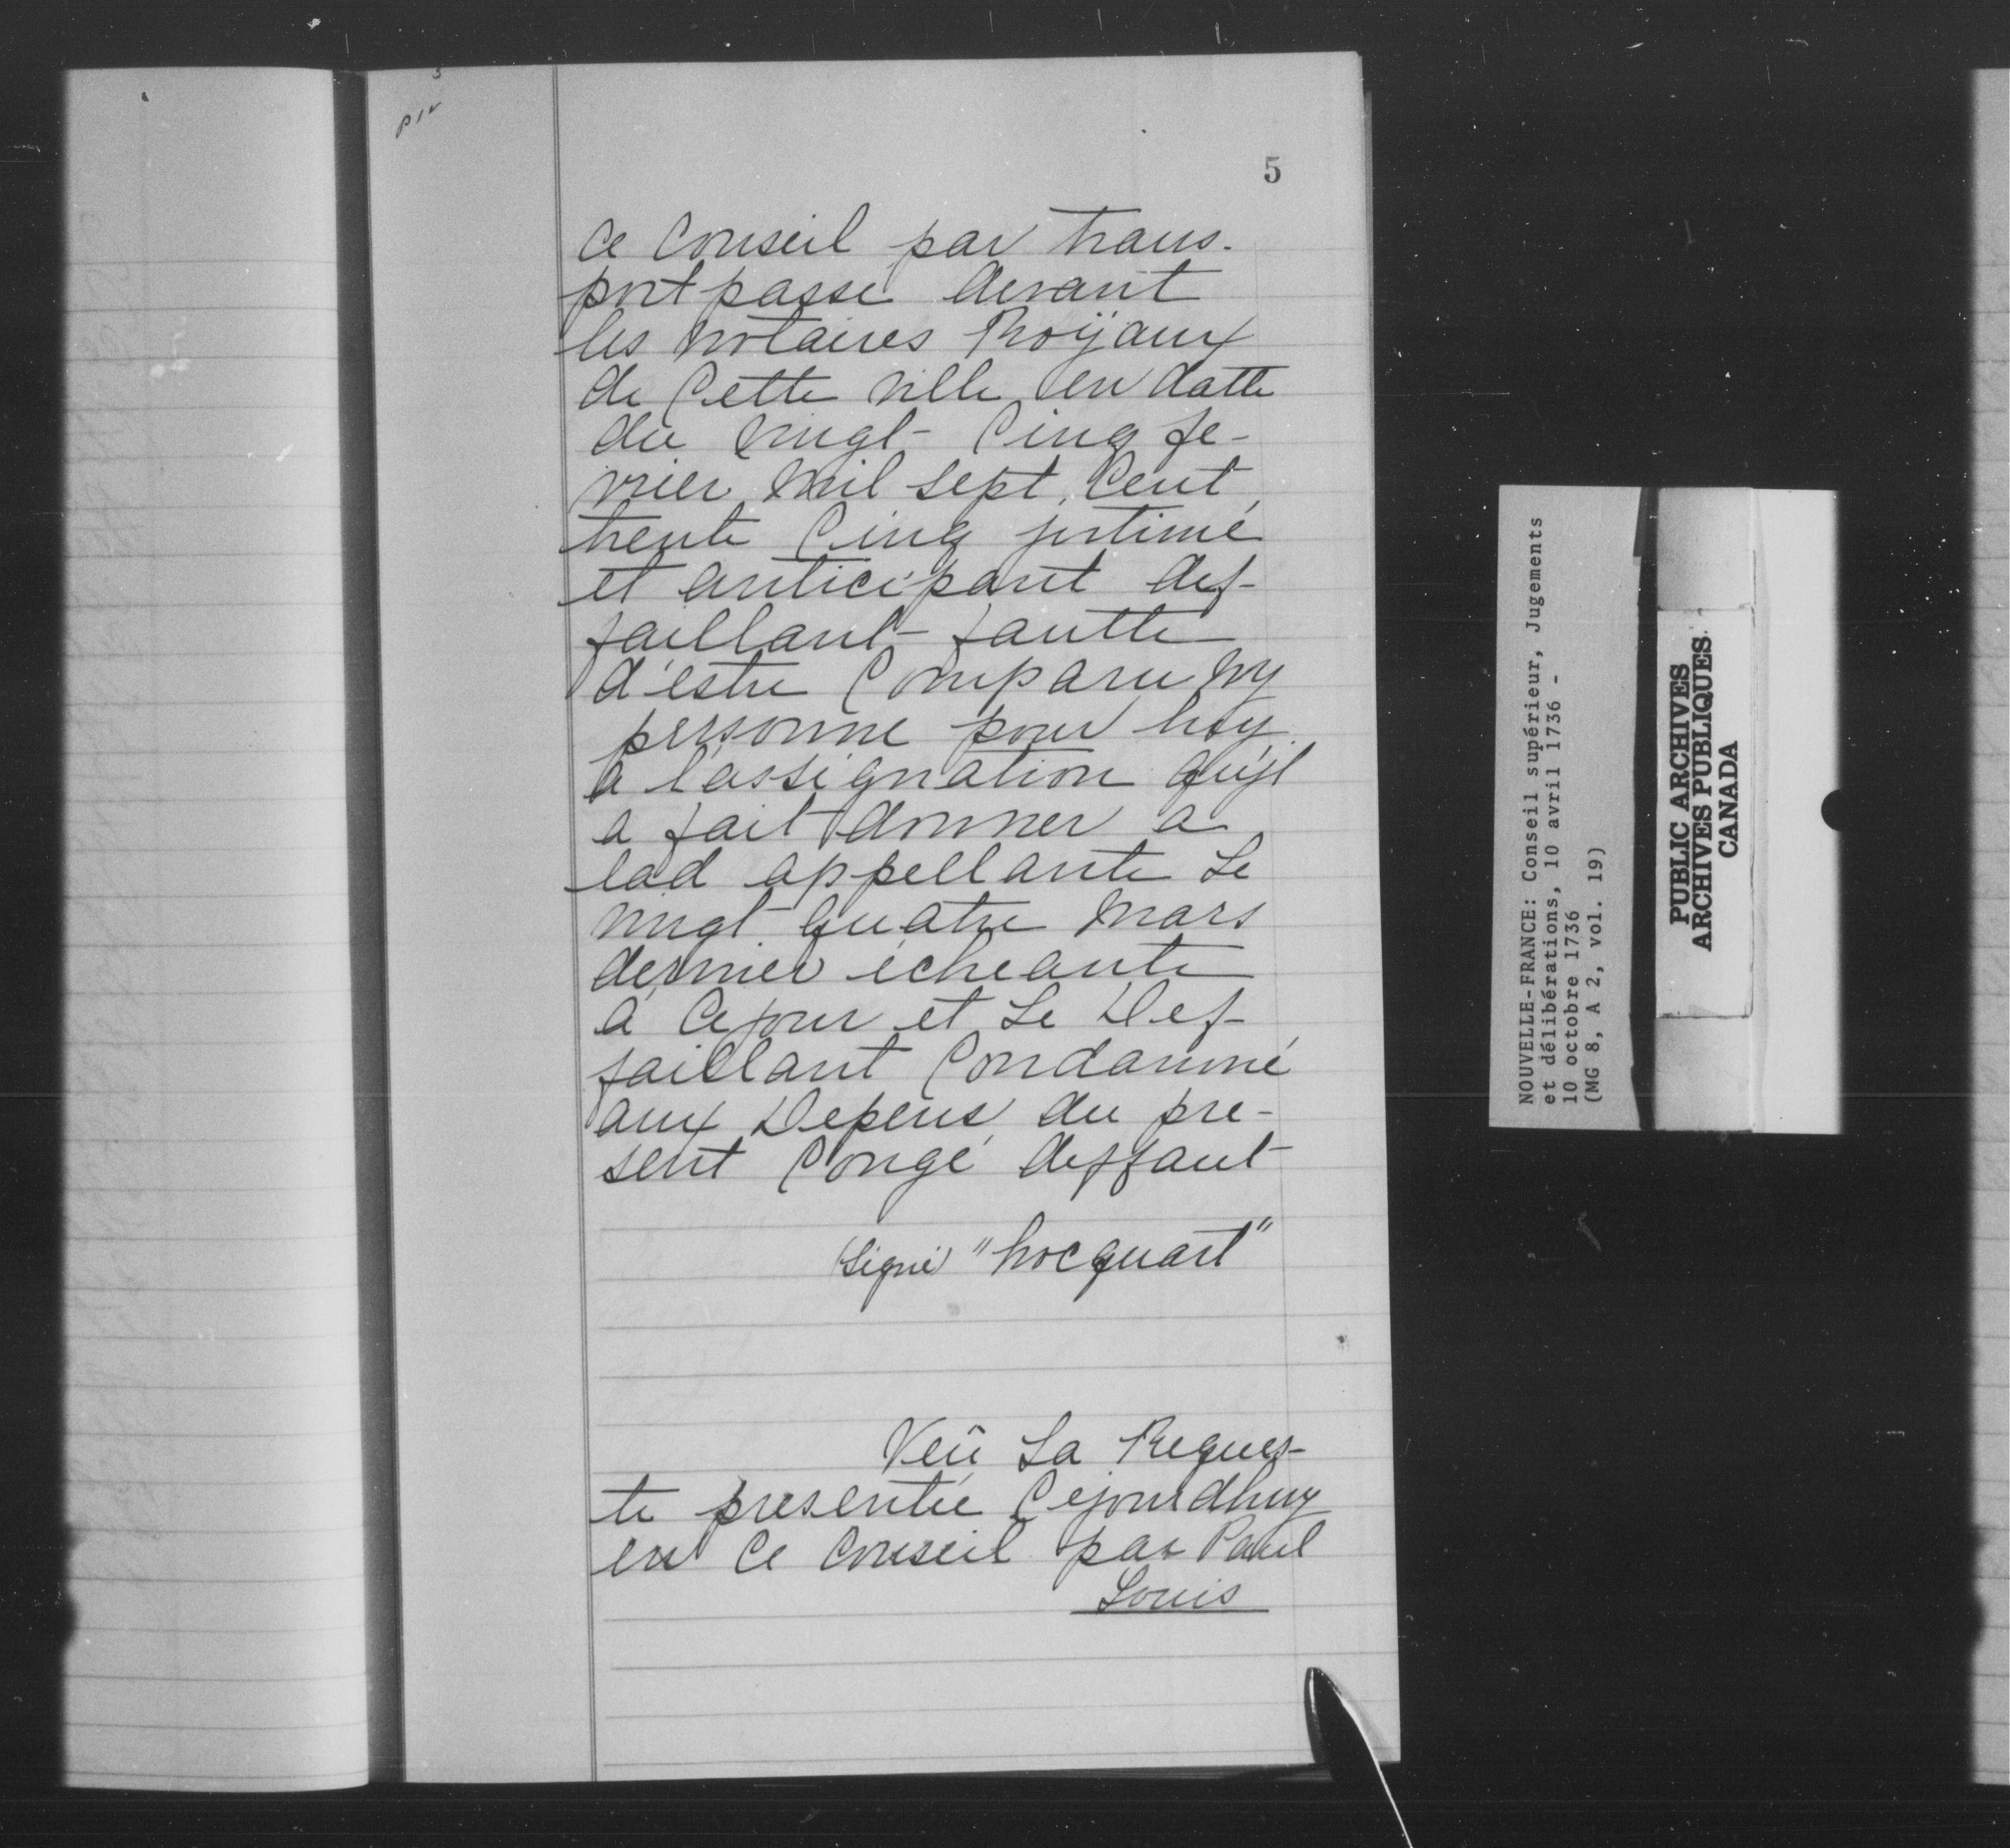 p 1v
5
Ce Conseil par trans-
port passé devant
les Notaires Roÿaux
de Cette ville en datte
du vingt Cinq fe-
vrier Mil Sept Cent
trente Cinq jntimé
et anticipant def-
faillant fautte
d'estre Comparu Ny
personne pour luy
a l'assignation qu'jl
a fait donner a
lad appellante Le
vingt quatre Mars
dernier echeante
a Cejour et Le Def-
faillant Condamné
aux Depens du pre-
sent Congé deffaut
(Signé) "hocquart"
Veû La Reques-
te presentée Cejourdhuy
en Ce Conseil par Paul
Louis
NOUVELLE-FRANCE: Conseil supérieur, Jugements
et délibérations, 10 avril 1736 -
10 octobre 1736
(MG 8, A 2, vol. 19)
PUBLIC ARCHIVES
ARCHIVES PUBLIQUES
CANADA